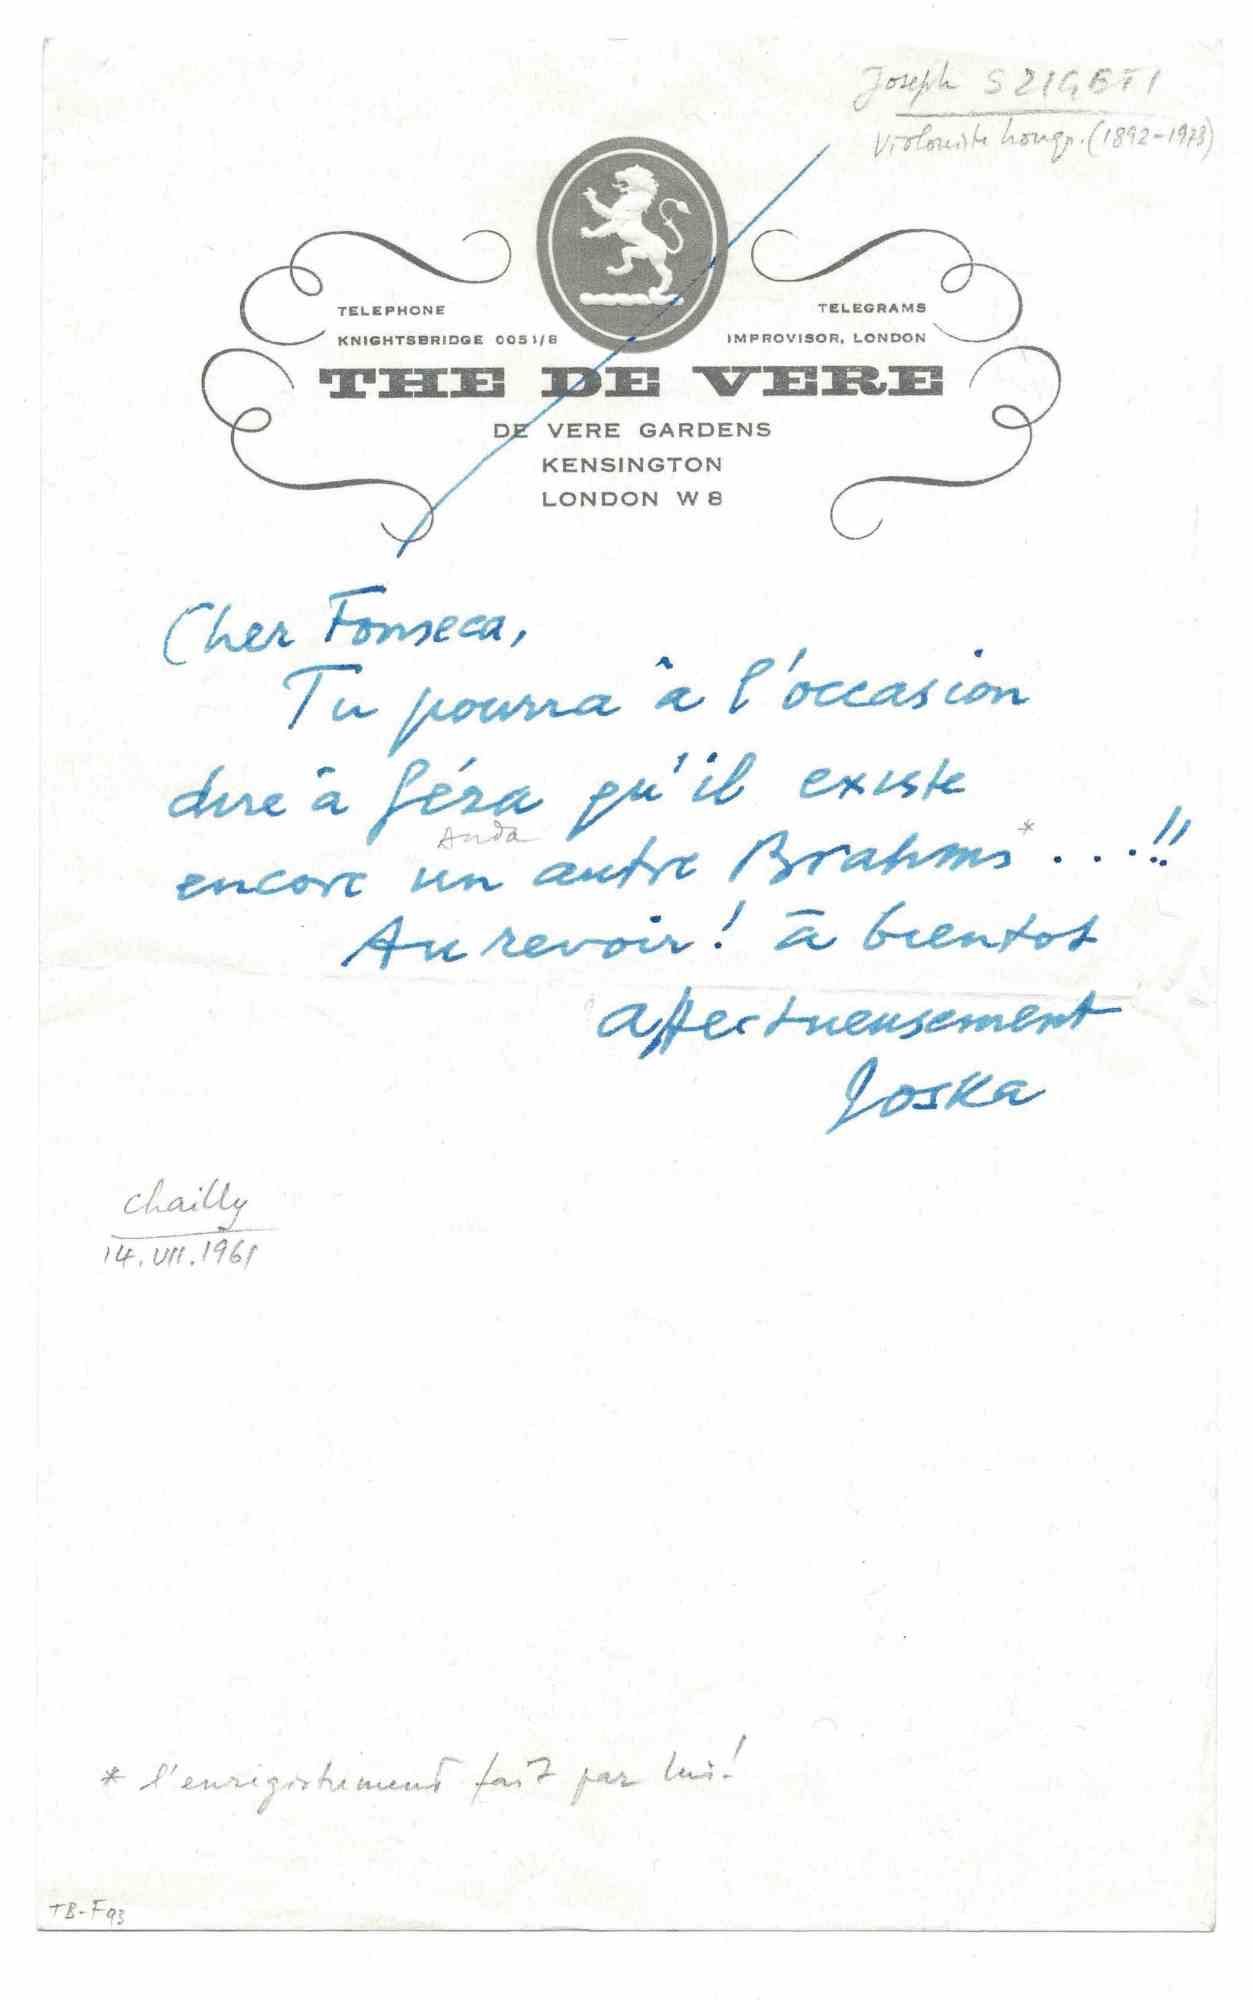 Joseph SZIGETI
Violoniste hongr. (1892-1973)
TELEPHONE
KNIGHTSBRIDGE 0051/8
TELEGRAMS
IMPROVISOR, LONDON
THE DE VERE
DE VERE GARDENS
KENSINGTON
LONDON W 8
Cher Fonseca,
Tu pourra à l'occasion
dire à Géza qu'il existe
Anda
encore un autre Brahms * ...!!
Au revoir! à bientot
affectueusement
Joska
Chailly
14.VII.1961
* l'enregistrement fait par lui!
TB-F93